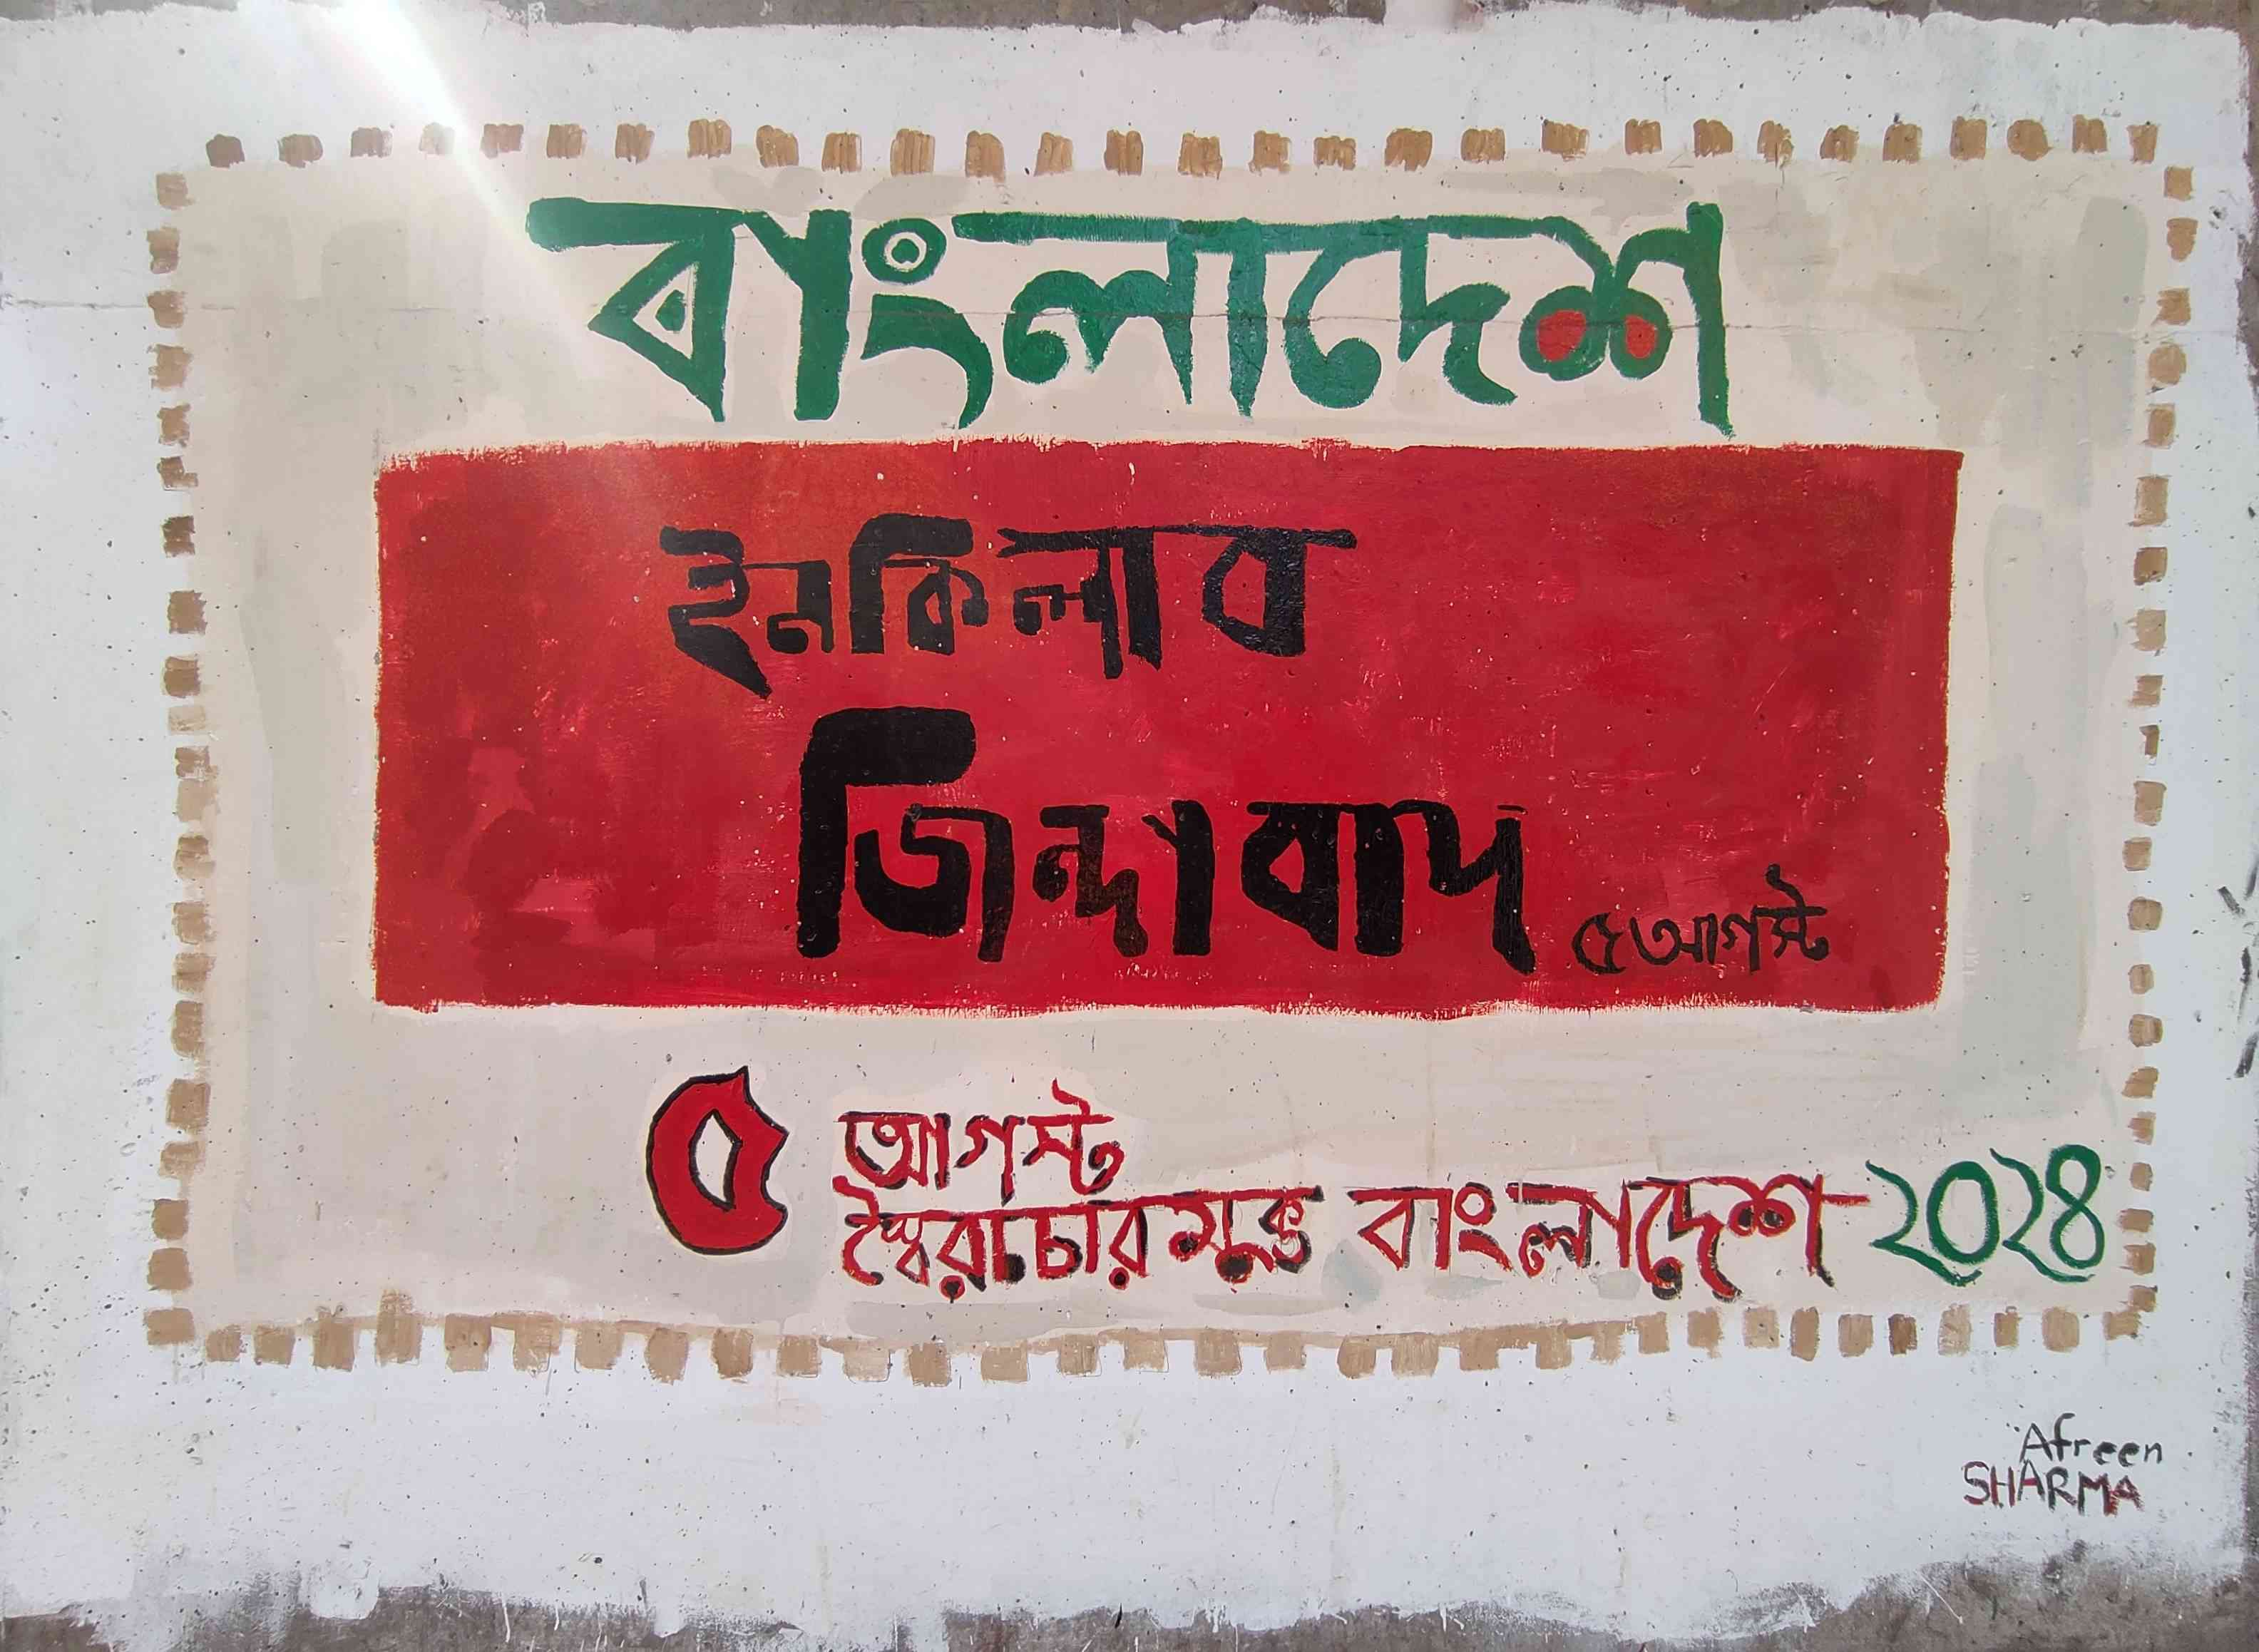 বাংলাদেশ
ইনকিলাব
জিন্দাবাদ
৫ আগস্ট
৫ আগস্ট
স্বৈরাচার মুক্ত বাংলাদেশ ২০২৪
Afreen
SHARMA